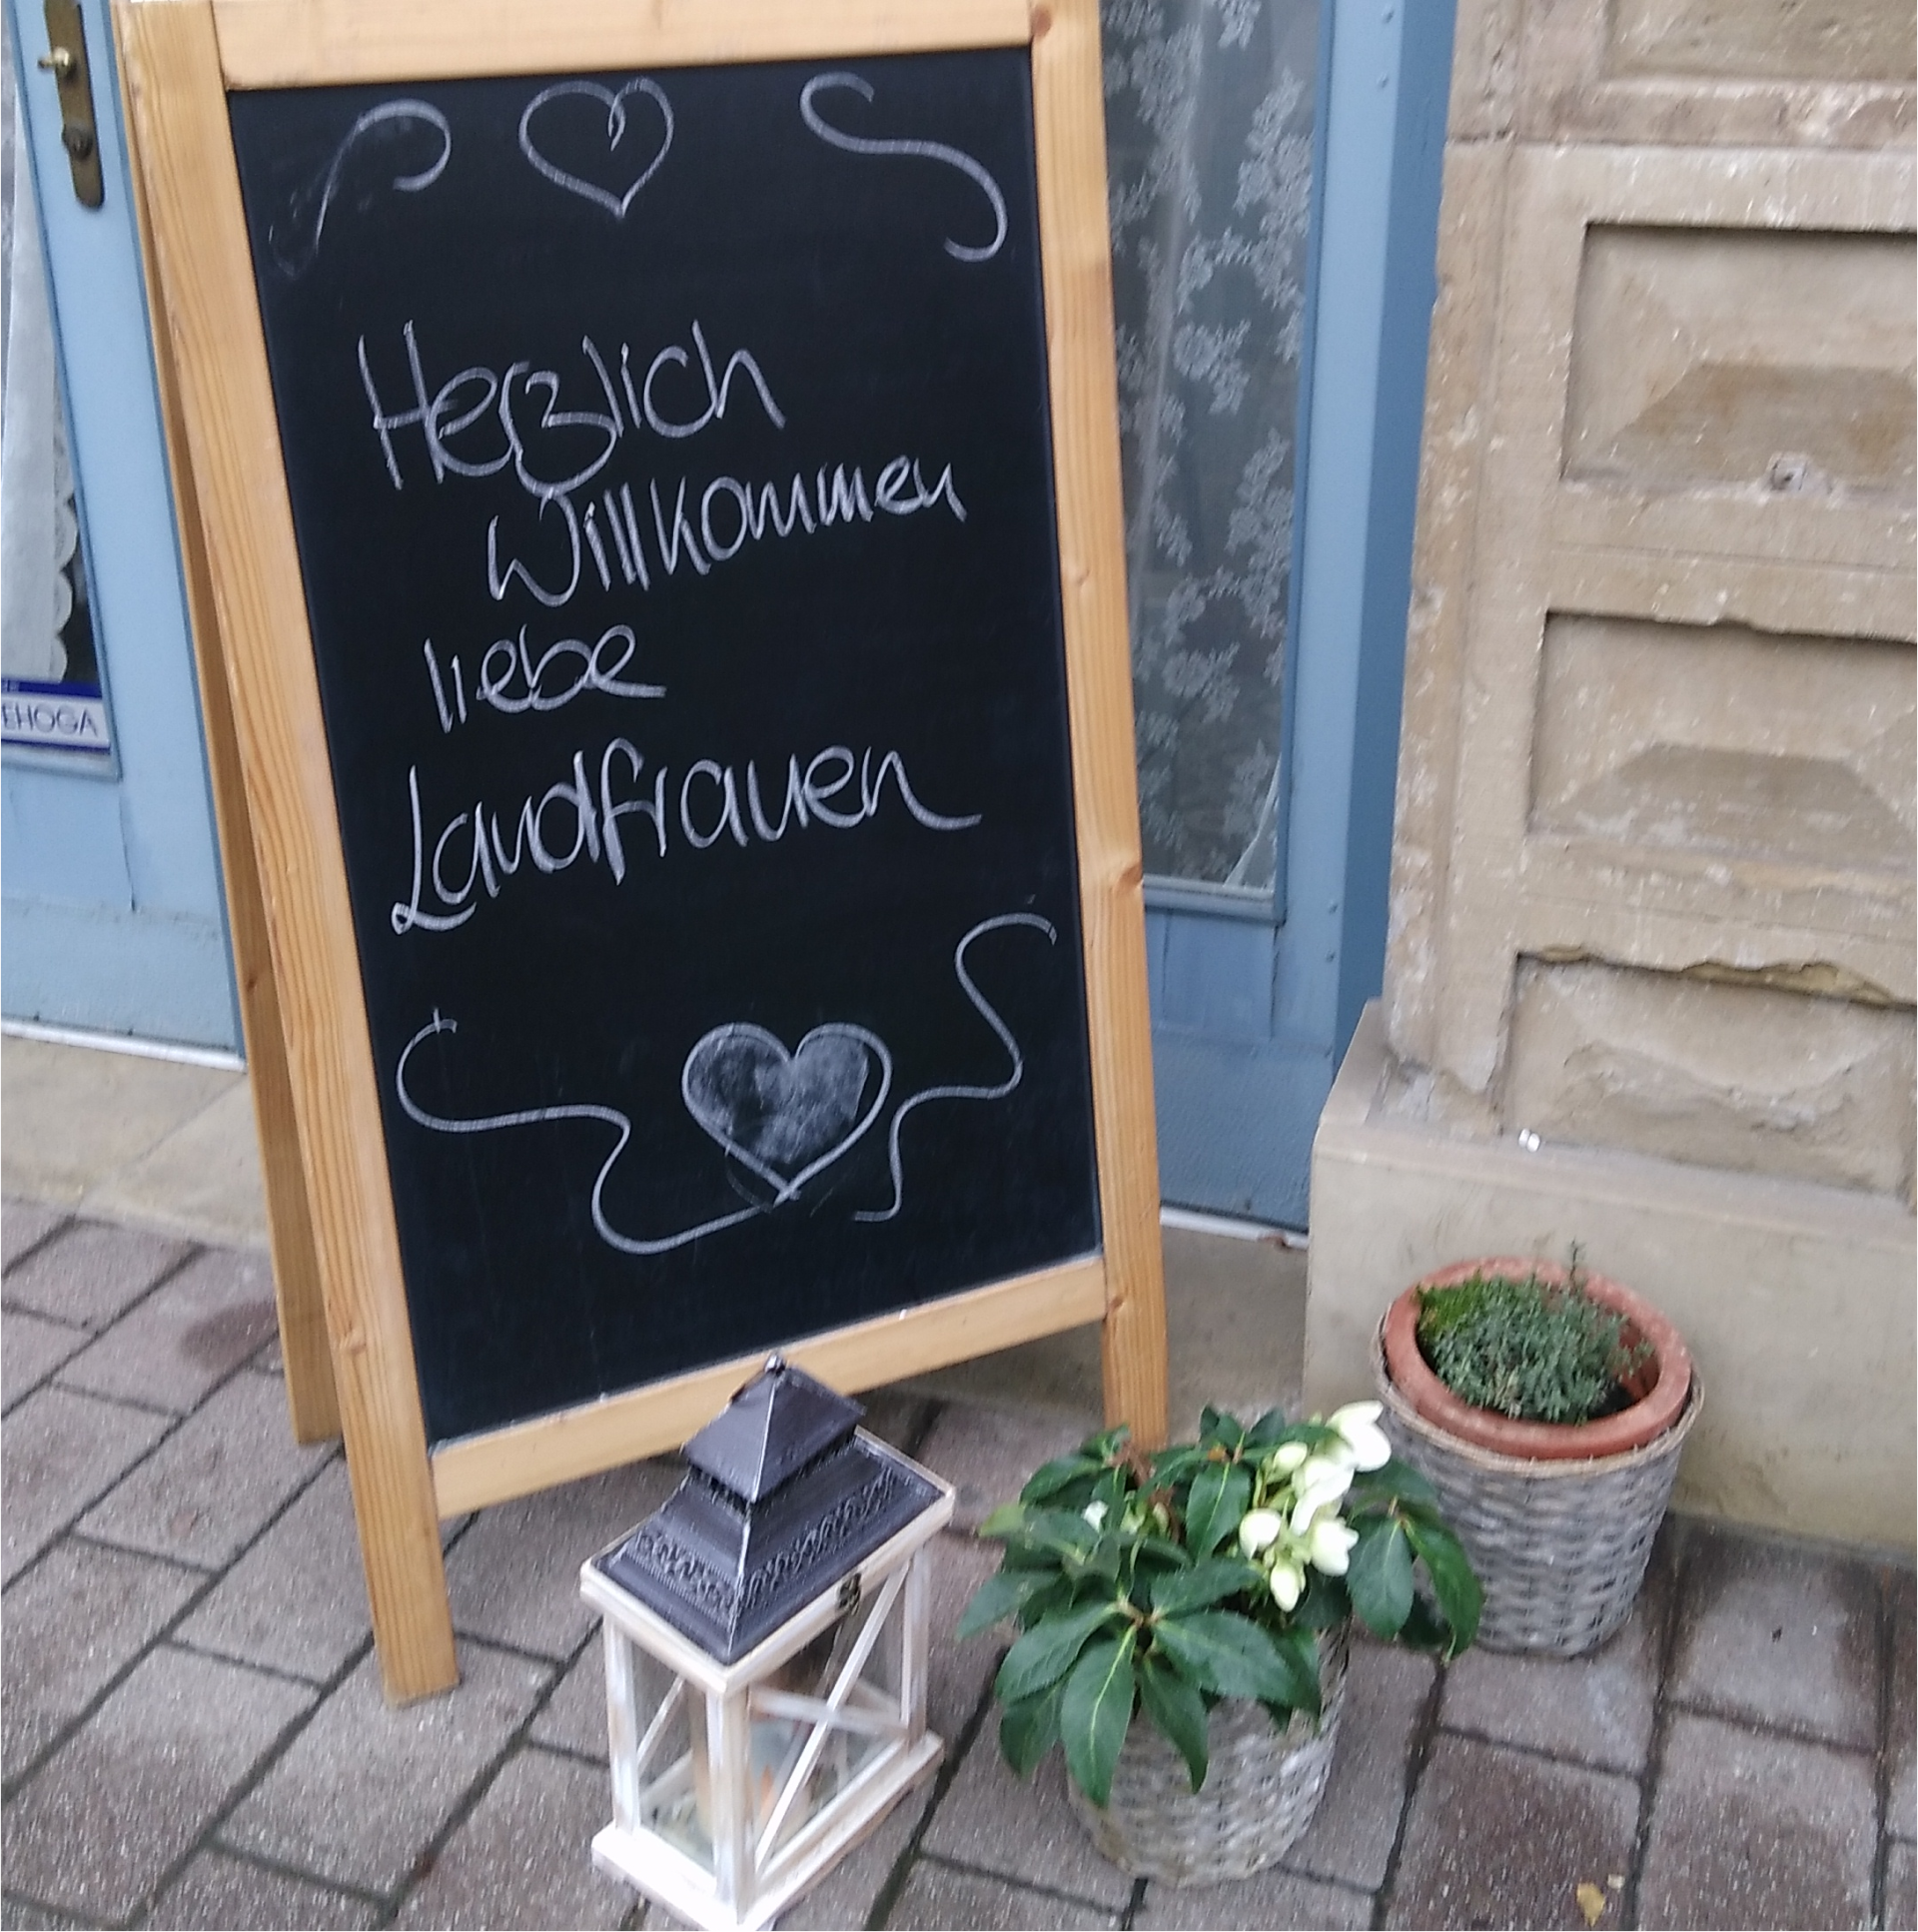 Herzlich
Willkommen
liebe
Landfrauen
EHOGA